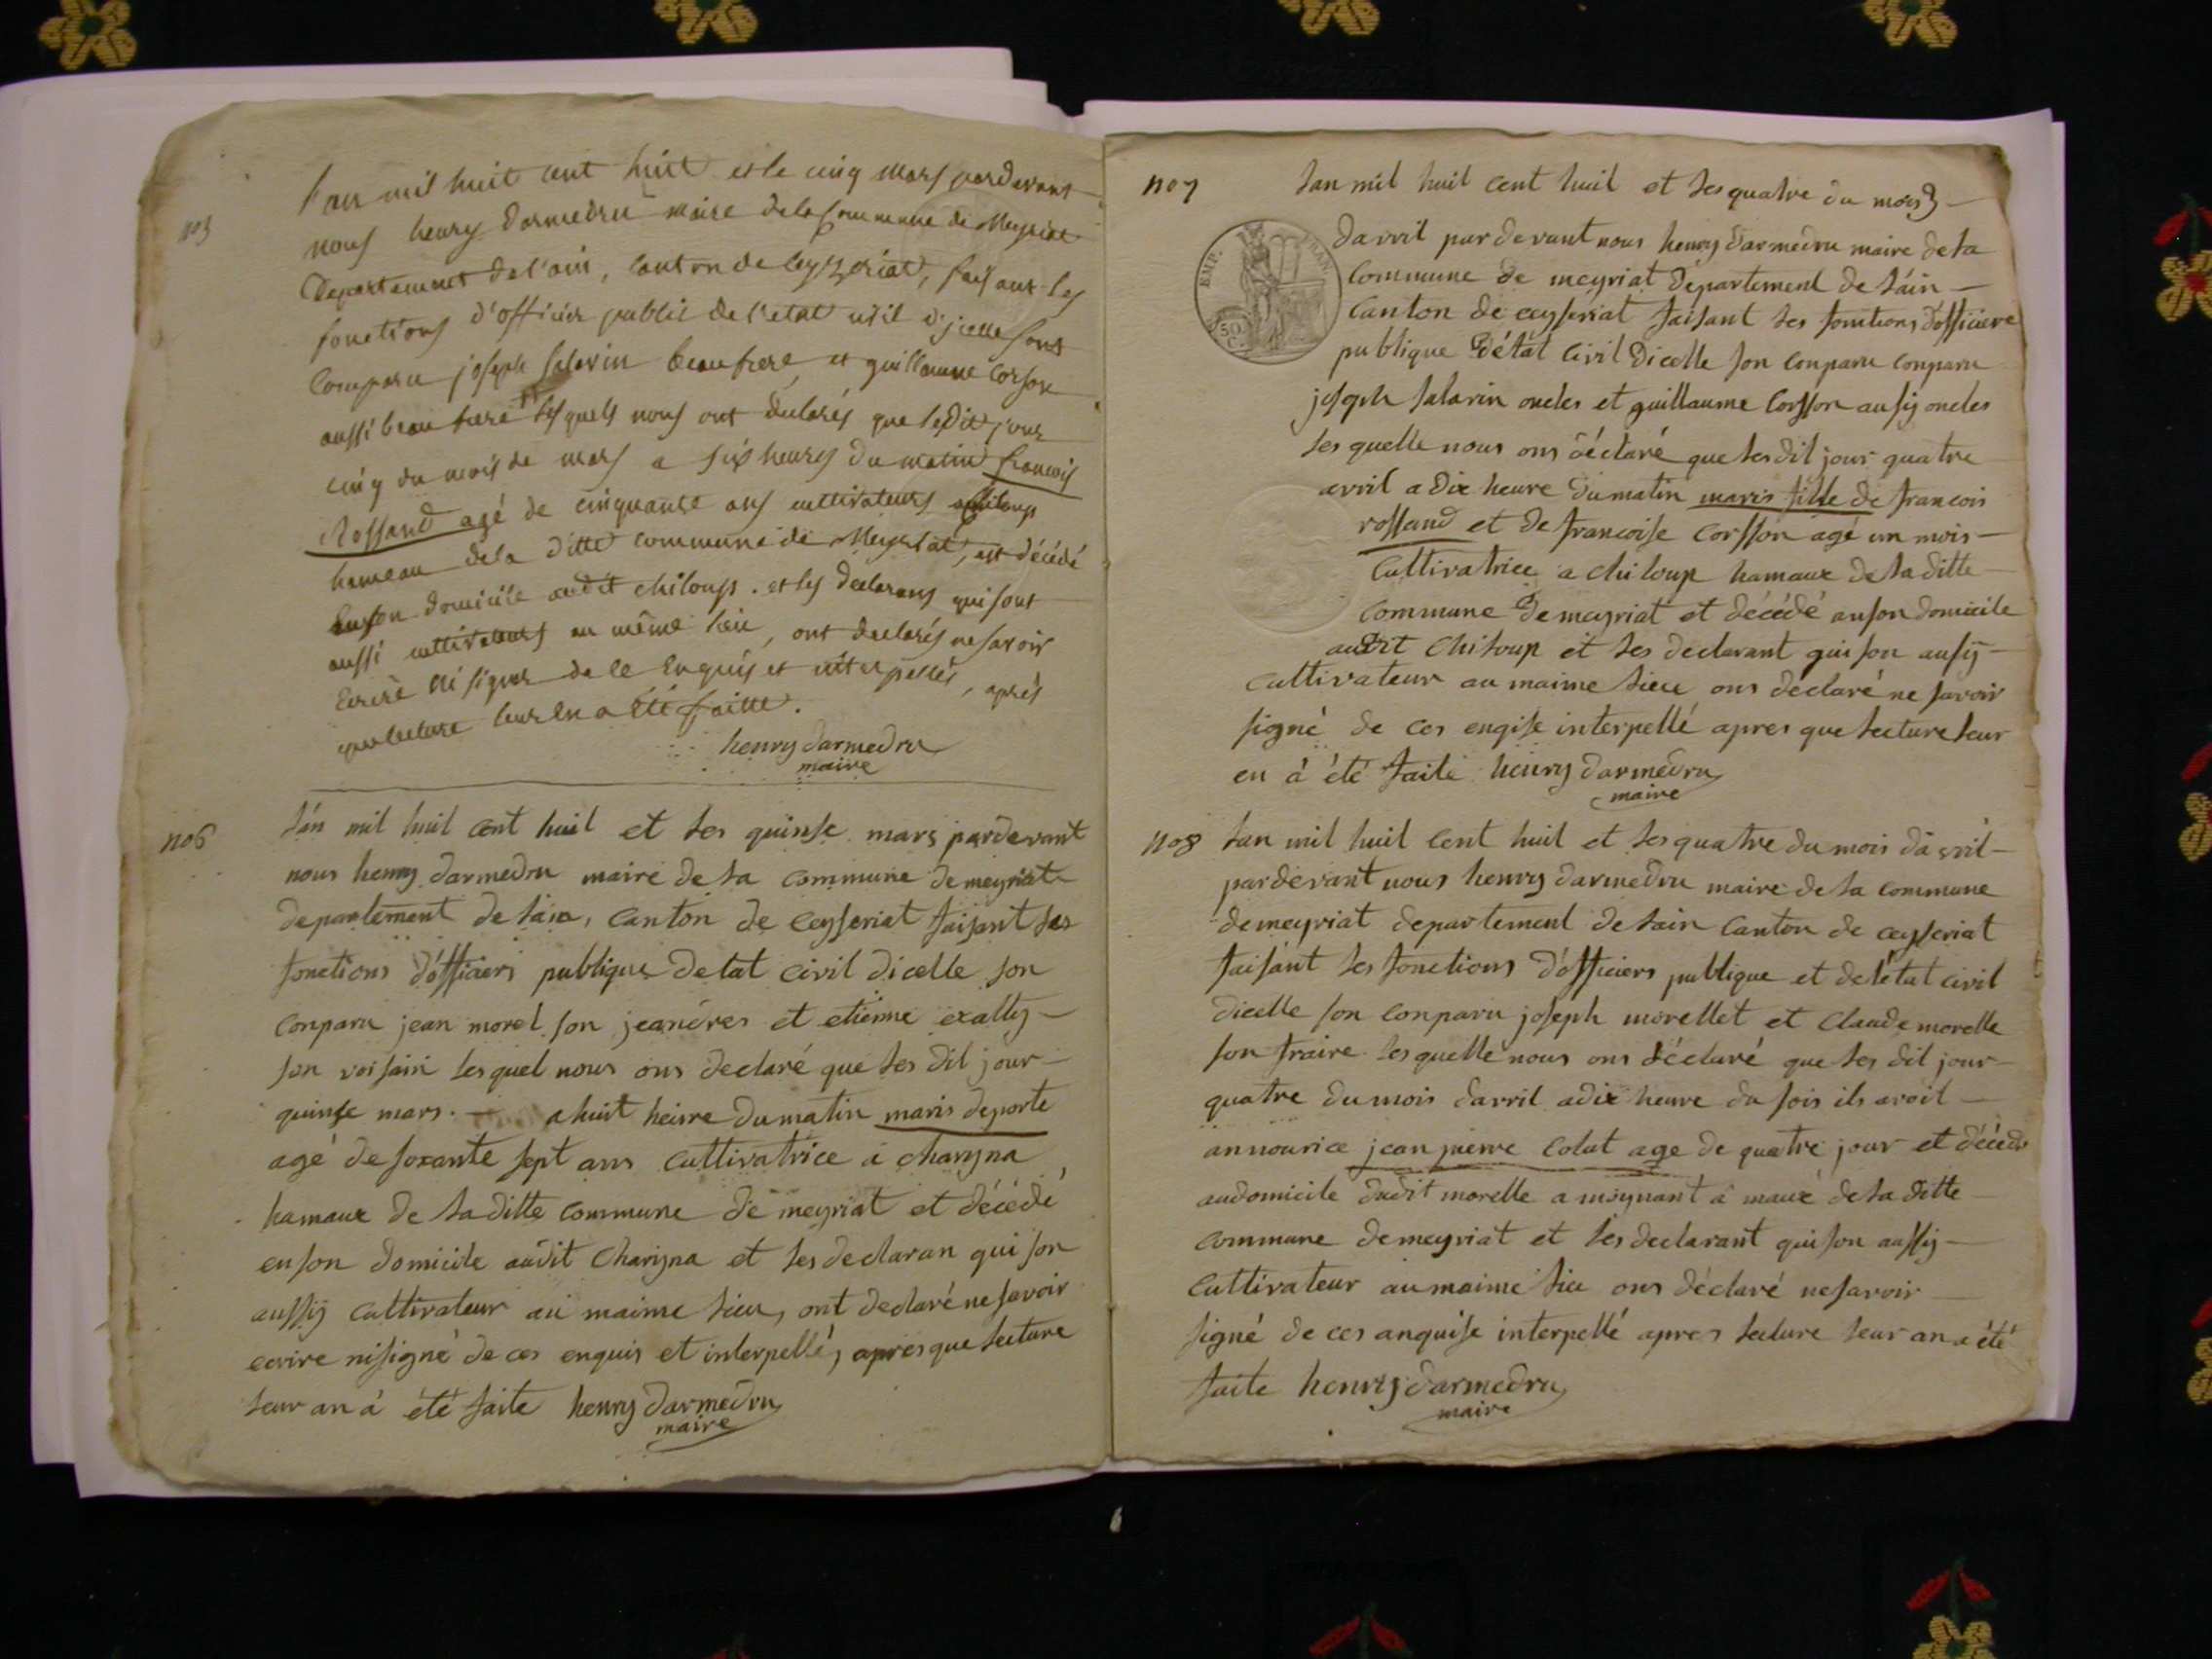 no5
l'an mil huit cent huit et le cinq mars pardevant
nous henry Darmedru maire de la Commune de Meyriat
Departement de l'ain, Canton de Ceyzeriat, faisant les
fonctions d'officier public de l'etat civil d'jcelle sont
Comparu joseph salarin beaufrere et guillaume Corson
aussi beau frere lesquels nous ont declarés que ledit jour
cinq du mois de mars a six heures du matin francois
Rossand agé de cinquante ans cultivateurs a Chiloup
hameau dela ditte commune de Meyriat, est décédé
enson domicile audit chiloup. et les declarans qui sont
aussi cultivateurs au même lieu, ont declarés ne savoir
Ecrire ni signer de ce Enquis et interpellés, après
que lecture leur En a été faitte.
henry darmedru
maire
no6
lán mil huil cent huil et les quinse mars pardevant
nous henry darmedru maire de la commune de meyriat
departement de lain, Canton de Ceyseriat faisant les
fonctions dófficiers publique detat civil dicelle son
Conparu jean morel son jeandres et etienne exally
son voisain lesquel nous ons declaré que les dil jour
quinse mars. a huit heure dumatin maris deporte
agé de soxante sept ans cultivatrice a charyna
hamaux de laditte commune de meyriat et décédé
enson domicile audit Charyna et les declaran qui son
aussij cultivateur au maime lieu, ont declaré ne savoir
ecrire nisigné de ces enquis et interpellé, apres que lecture
leur an á été faite henry darmedru
maire
no7
lan mil huil cent huil et les quatre du mois
EMP. FRAN.
50 C.
davril pardevant nous henry darmedru maire dela
Commune de meyriat departement de láin
Canton de ceyseriat faisant les fonctions dófficiere
publique détat Civil Dicelle son conparu conparu
joseph salarin oncles et guillaume Corsson ausij oncles
les quelle nous ons déclaré que lesdit jour quatre
avril a dix heure dumatin maris fille de francois
rossand et de francoise Corsson agé un mois
Cultivatrice a chiloup hamaux de laditte
Commune de meyriat et décédé anson domicile
audit Chiloup et les declarant qui son ausij
cultivateur au maime lieu ons déclaré ne savoir
signé de ces engise interpellé apres que lecture leur
en á été faite henry darmedru
maire
no8
lan mil huil cent huil et les quatre du mois dávril
pardevant nous henry darmedru maire de la commune
demeyriat departement de lain Canton de ceyseriat
faisánt les fonctions dófficiers publique et de létat civil
dicelle son Conparu joseph morellet et Claude morelle
son fraire les quelle nous ons déclaré que les dil jour
quatre du mois davril adix heure du soir ils avoil
annourice jean pierre Colut age de quatre jour et décéde
audomicile dudit morelle a moynant á maux de la ditte
commune demeyriat et les declarant qui son aussij
cultivateur aumaime lieu ons déclaré nesavoir
signé de ces anquise interpellé apres lecture leur an a été
faite henry darmedru
maire